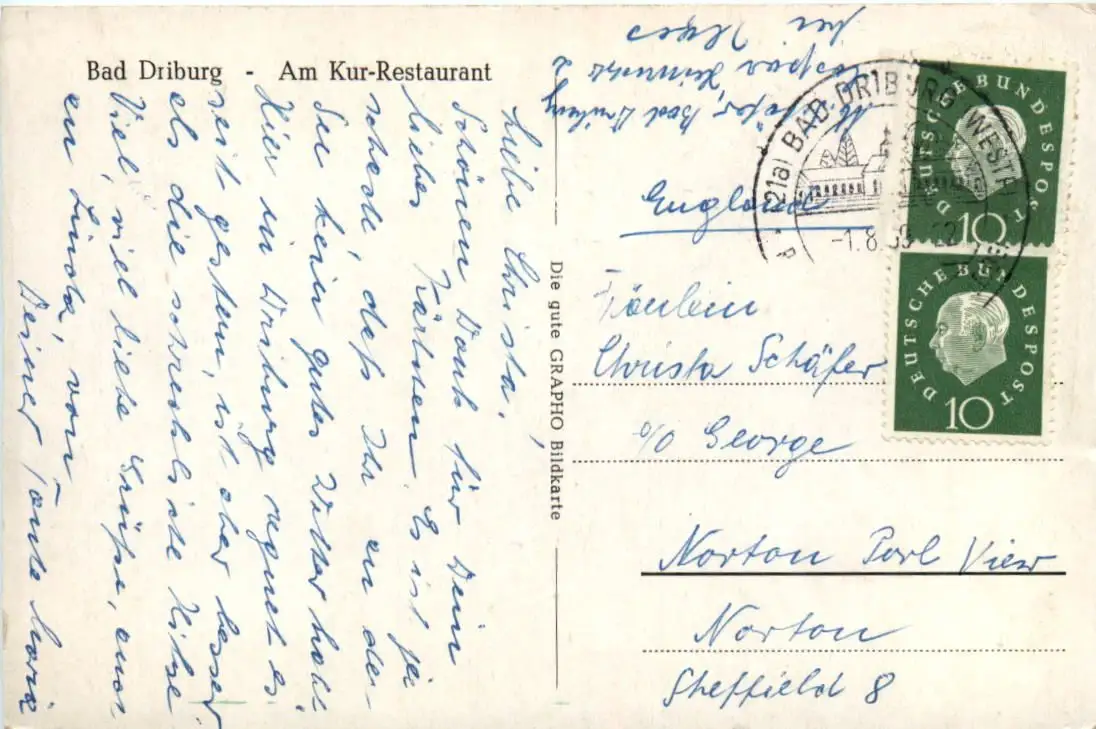 Bad Driburg - Am Kur-Restaurant
Liebe Christa,
Schönen Dank für Dein
liebes Kärtchen. Es ist ja
schade, daß Ihr an der
See kein gutes Wetter habt.
Hier in Driburg regnet es
seit gestern, ist aber besser
als die schreckliche Hitze
Viel, viel liebe Grüße, auch
an Linda, von
Deiner Tante Maria
Die gute GRAPHO Bildkarte
Schäfer, Bad Driburg
Caspar Heinrich 2
bei
(21a) BAD DRIBURG WESTF
-1.8.59-22
d
DEUTSCHE BUNDESPOST
10
DEUTSCHE BUNDESPOST
10
England
Fräulein
Christa Schäfer
c/o George
Norton Parl View
Norton
Sheffield 8